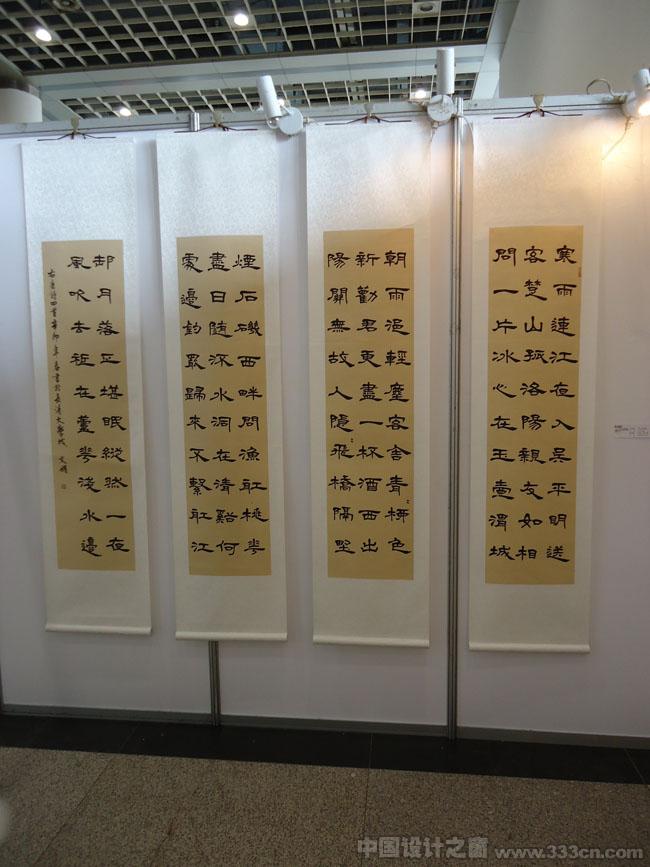 寒雨連江夜入吴平明送
客楚山孤洛陽親友如相
問一片冰心在玉壺渭城
朝雨浥輕塵客舍青〻柳色
新勸君更盡一杯酒西出
陽關無故人隱〻飛橋隔野
煙石磯西畔問漁舡桃花
盡日随流水洞在清谿何
處邊釣罷歸来不繫舡江
邨月落正堪眠縱然一夜
風吹去祗在蘆花淺水邊
右唐诗四首辛卯年春書於長清大學城
中国设计之窗 www.333cn.com